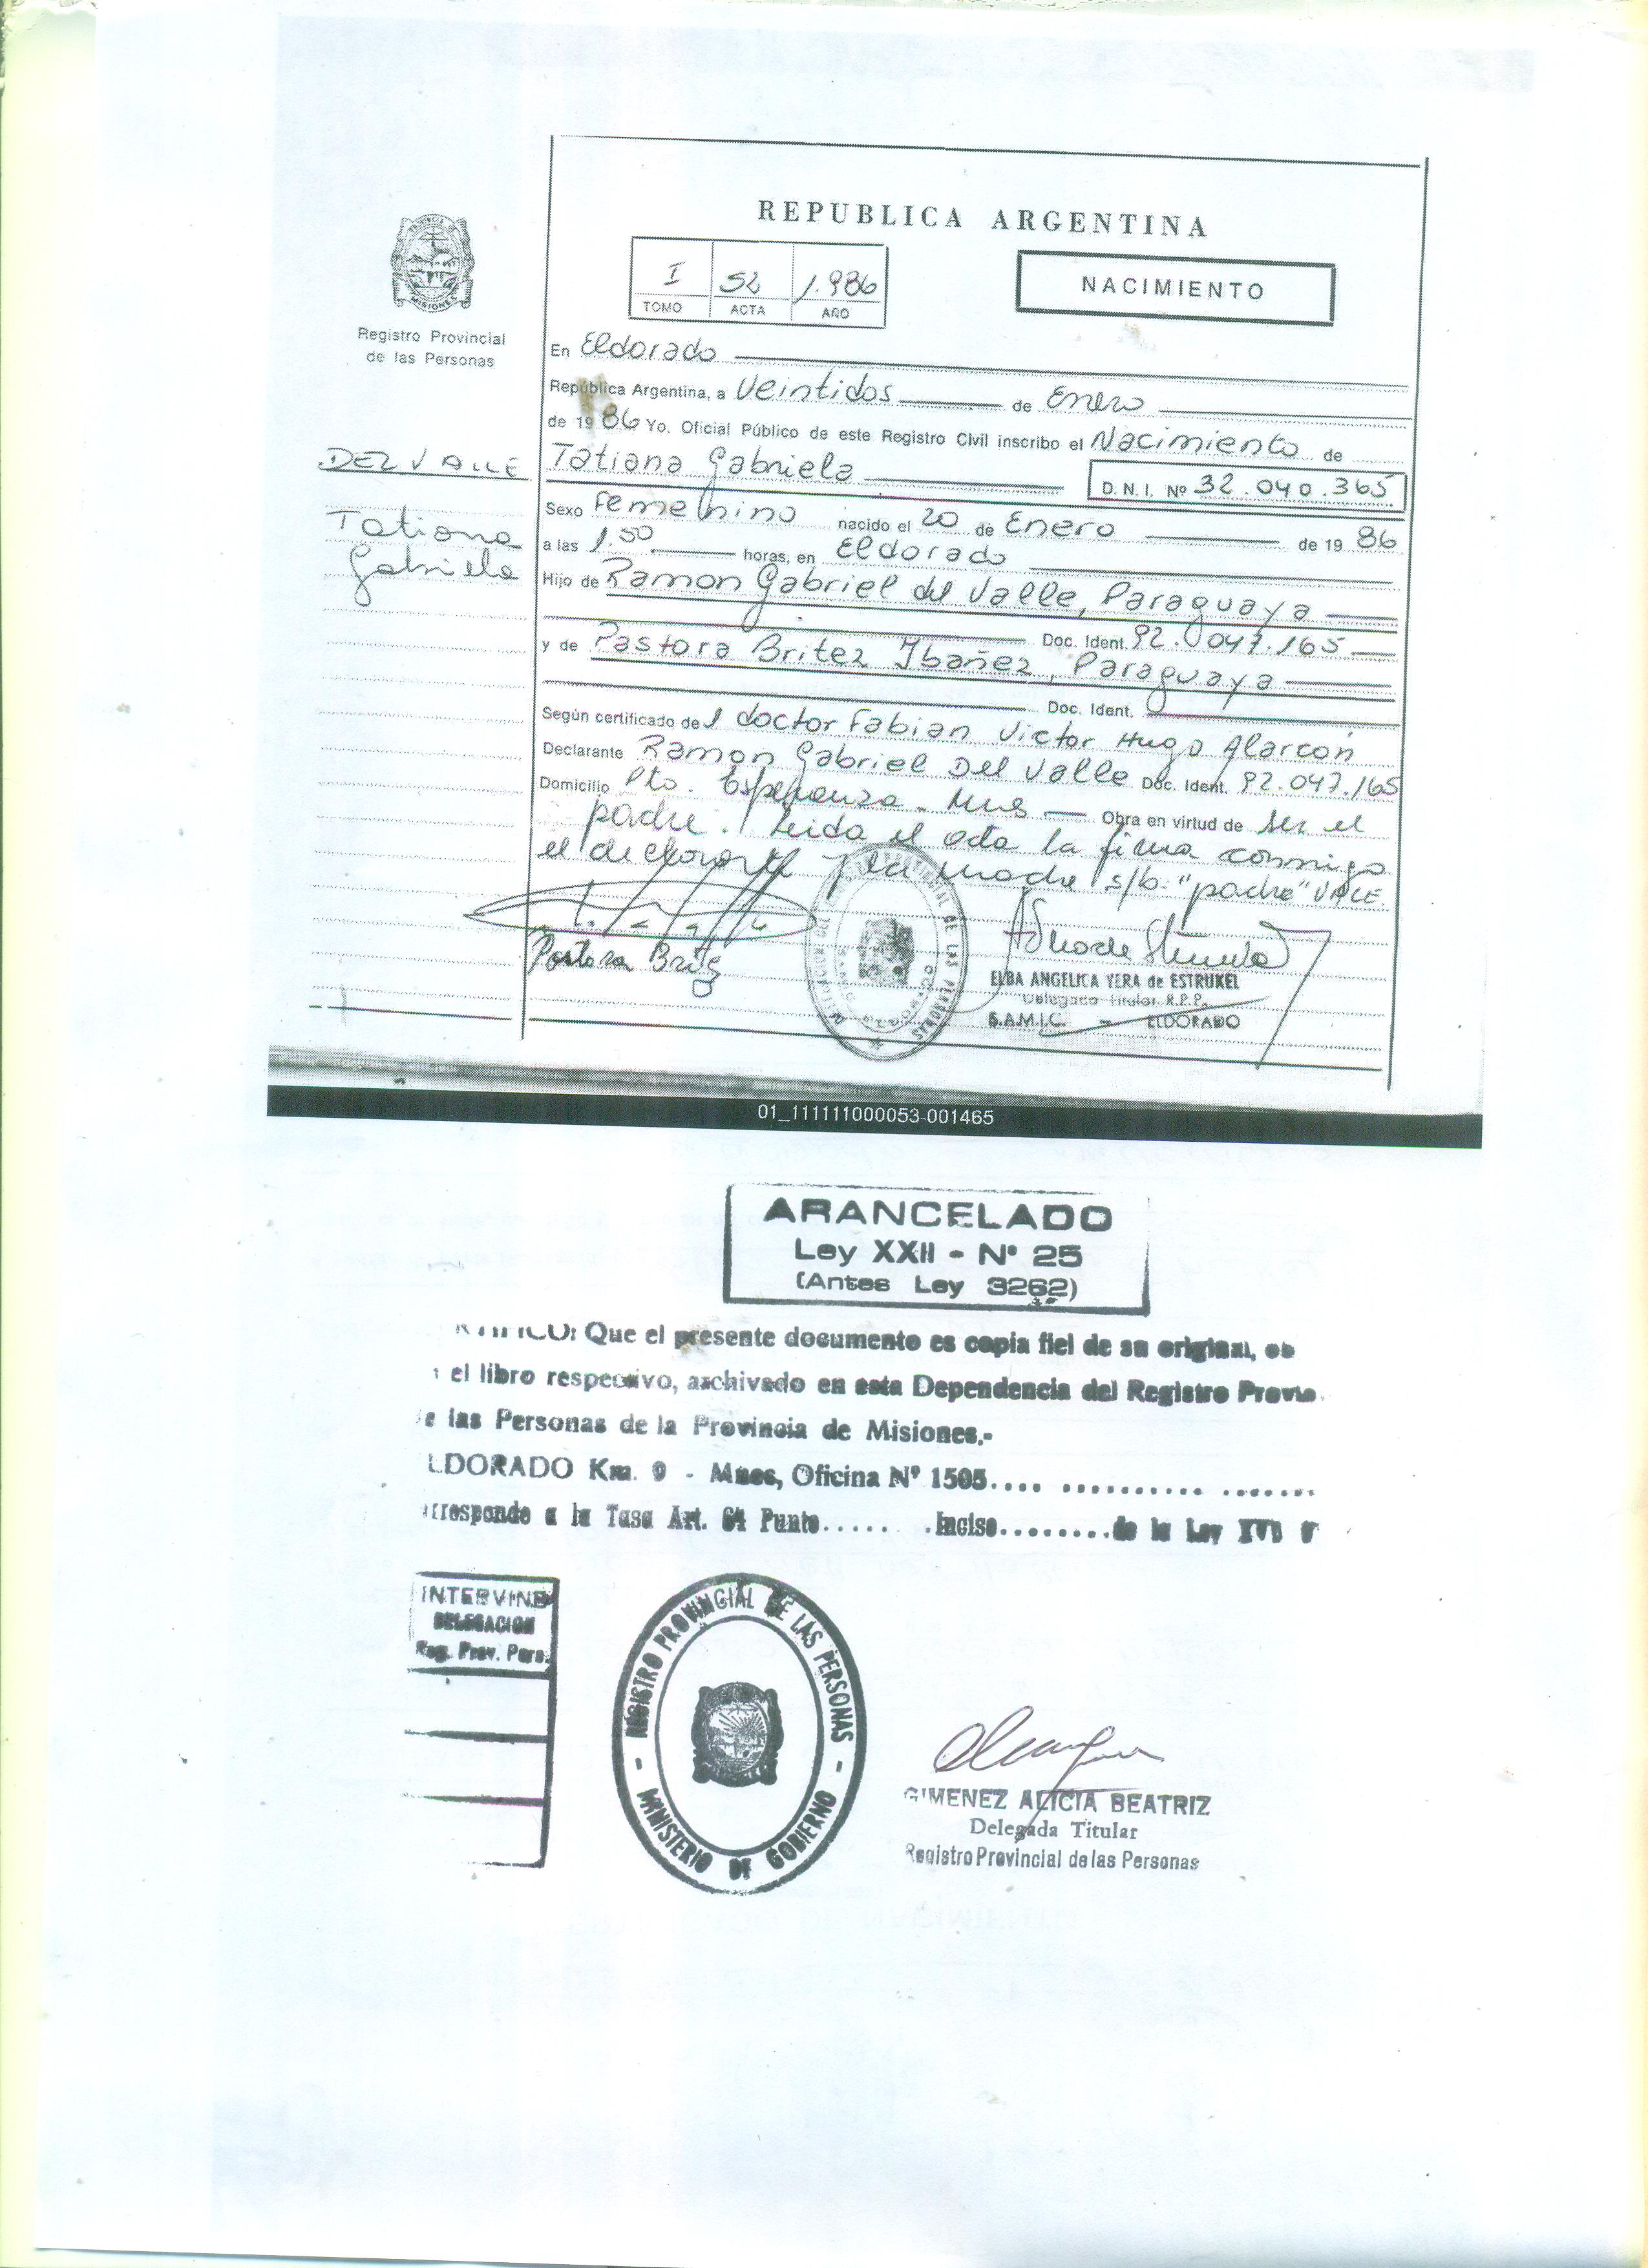 REPUBLICA ARGENTINA
PROVINCIA
MISIONES
Registro Provincial
de las Personas
I 52 1.986
TOMO ACTA AÑO
NACIMIENTO
En Eldorado
República Argentina, a Veintidos de Enero
de 19 86 Yo, Oficial Público de este Registro Civil inscribo el Nacimiento de
Tatiana Gabriela D.N.I. Nº 32.040.365
DEL VALLE
Tatiana
Gabriela
Sexo Femenino nacido el 20 de Enero de 19 86
a las 1.50 horas, en Eldorado
Hijo de Ramon Gabriel del Valle, Paraguaya
Doc. Ident. 92.047.165
y de Pastora Britez Ybañez, Paraguaya
Doc. Ident.
Según certificado del doctor Fabian Victor Hugo Alarcón
Declarante Ramon Gabriel Del Valle Doc. Ident. 92.047.165
Domicilio Pto. Esperanza - Mnes Obra en virtud de ser el
padre. Leida el acta la firma conmigo
el declarante y la madre s/b. "padre" VALE.
Pastora Britez
ELBA ANGELICA VERA de ESTRUKEL
Delegada Titular R.P.P.
S.A.M.I.C. - ELDORADO
01_111111000053-001465
ARANCELADO
Ley XXII - Nº 25
(Antes Ley 3262)
Que el presente documento es copia fiel de su original, ob
el libro respectivo, archivado en esta Dependencia del Registro Provin
e las Personas de la Provincia de Misiones.-
LDORADO Km. 9 - Mnes, Oficina Nº 1505.... .......... .......
rresponde a la Tasa Art. 64 Punto...... .Inciso........de la Ley XVI
INTERVINE
DELEGACION
Reg. Prov. Pers.
REGISTRO PROVINCIAL DE LAS PERSONAS
- MINISTERIO DE GOBIERNO -
GIMENEZ ALICIA BEATRIZ
Delegada Titular
Registro Provincial de las Personas